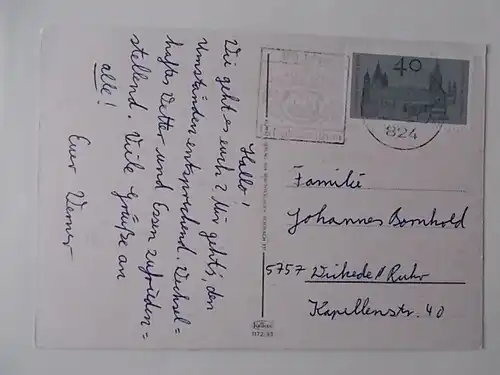 Hallo!
Wie geht es euch? Mir geht's, den
Umständen entsprechend. Wechsel=
haftes Wetter und Essen zufrieden=
stellend. Viele Grüße an
alle!
Euer Werner
40
824
Familie
Johannes Bornhold
5757 Wickede/Ruhr
Kapellenstr. 40